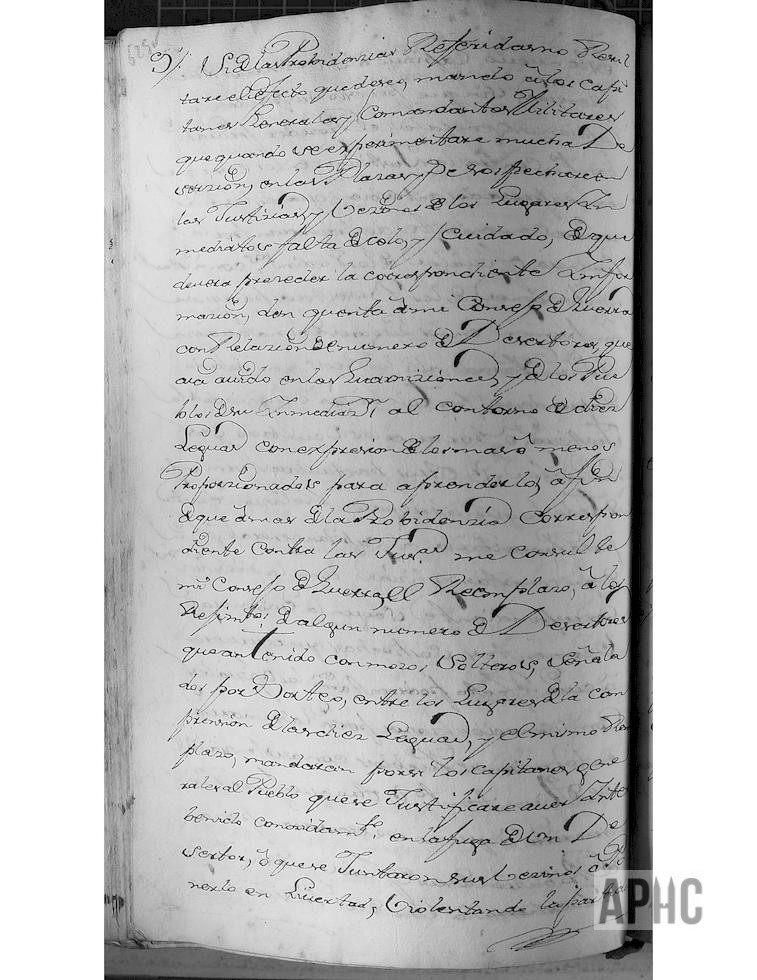 9/. Si de las Probidenzias Referidas no Resul
tare el efecto que deseo, mando â los Capi
tanes Generales, y Comandantes Militares
que quando se experimentare mucha De
serzion, en las Plazas, y se sospechare en
las Justizias, y Vezinos de los Lugares Yn
mediatos falta de zelo, y Cuidado, de que
devera preceder la correspondiente Ynfor
mazion, den quenta â mi Consejo de Guerra
con Relazion de numero de Desertores, que
aia avido en las Guarniziones, y de los Pue
blos de su Ynmediaz.n al contorno de diez
Leguas con expresion de los mas ô menos
Proporzionados para aprenderlos, â fin
de que â mas de la Probidenzia Correspon
diente Contra las Jus.as me Consulte
mi Consejo de Guerra, el Reemplazo, â los
Rejim.tos de algun numero de Desertores
que an tenido con mozos Solteros, Señala
dos por Sorteo, entre los Lugares de la Com
prension de las diez Leguas, y el mismo Rem
plazo, mandaran por si los Capitanes Gene
rales al Pueblo que se Justificare aver Ynte
benido conozidam.te en la fuga de un De
sertor, ô que se Juntaron sus Vezinos â Po
nerlo en Livertad, Violentando la partida
APHC